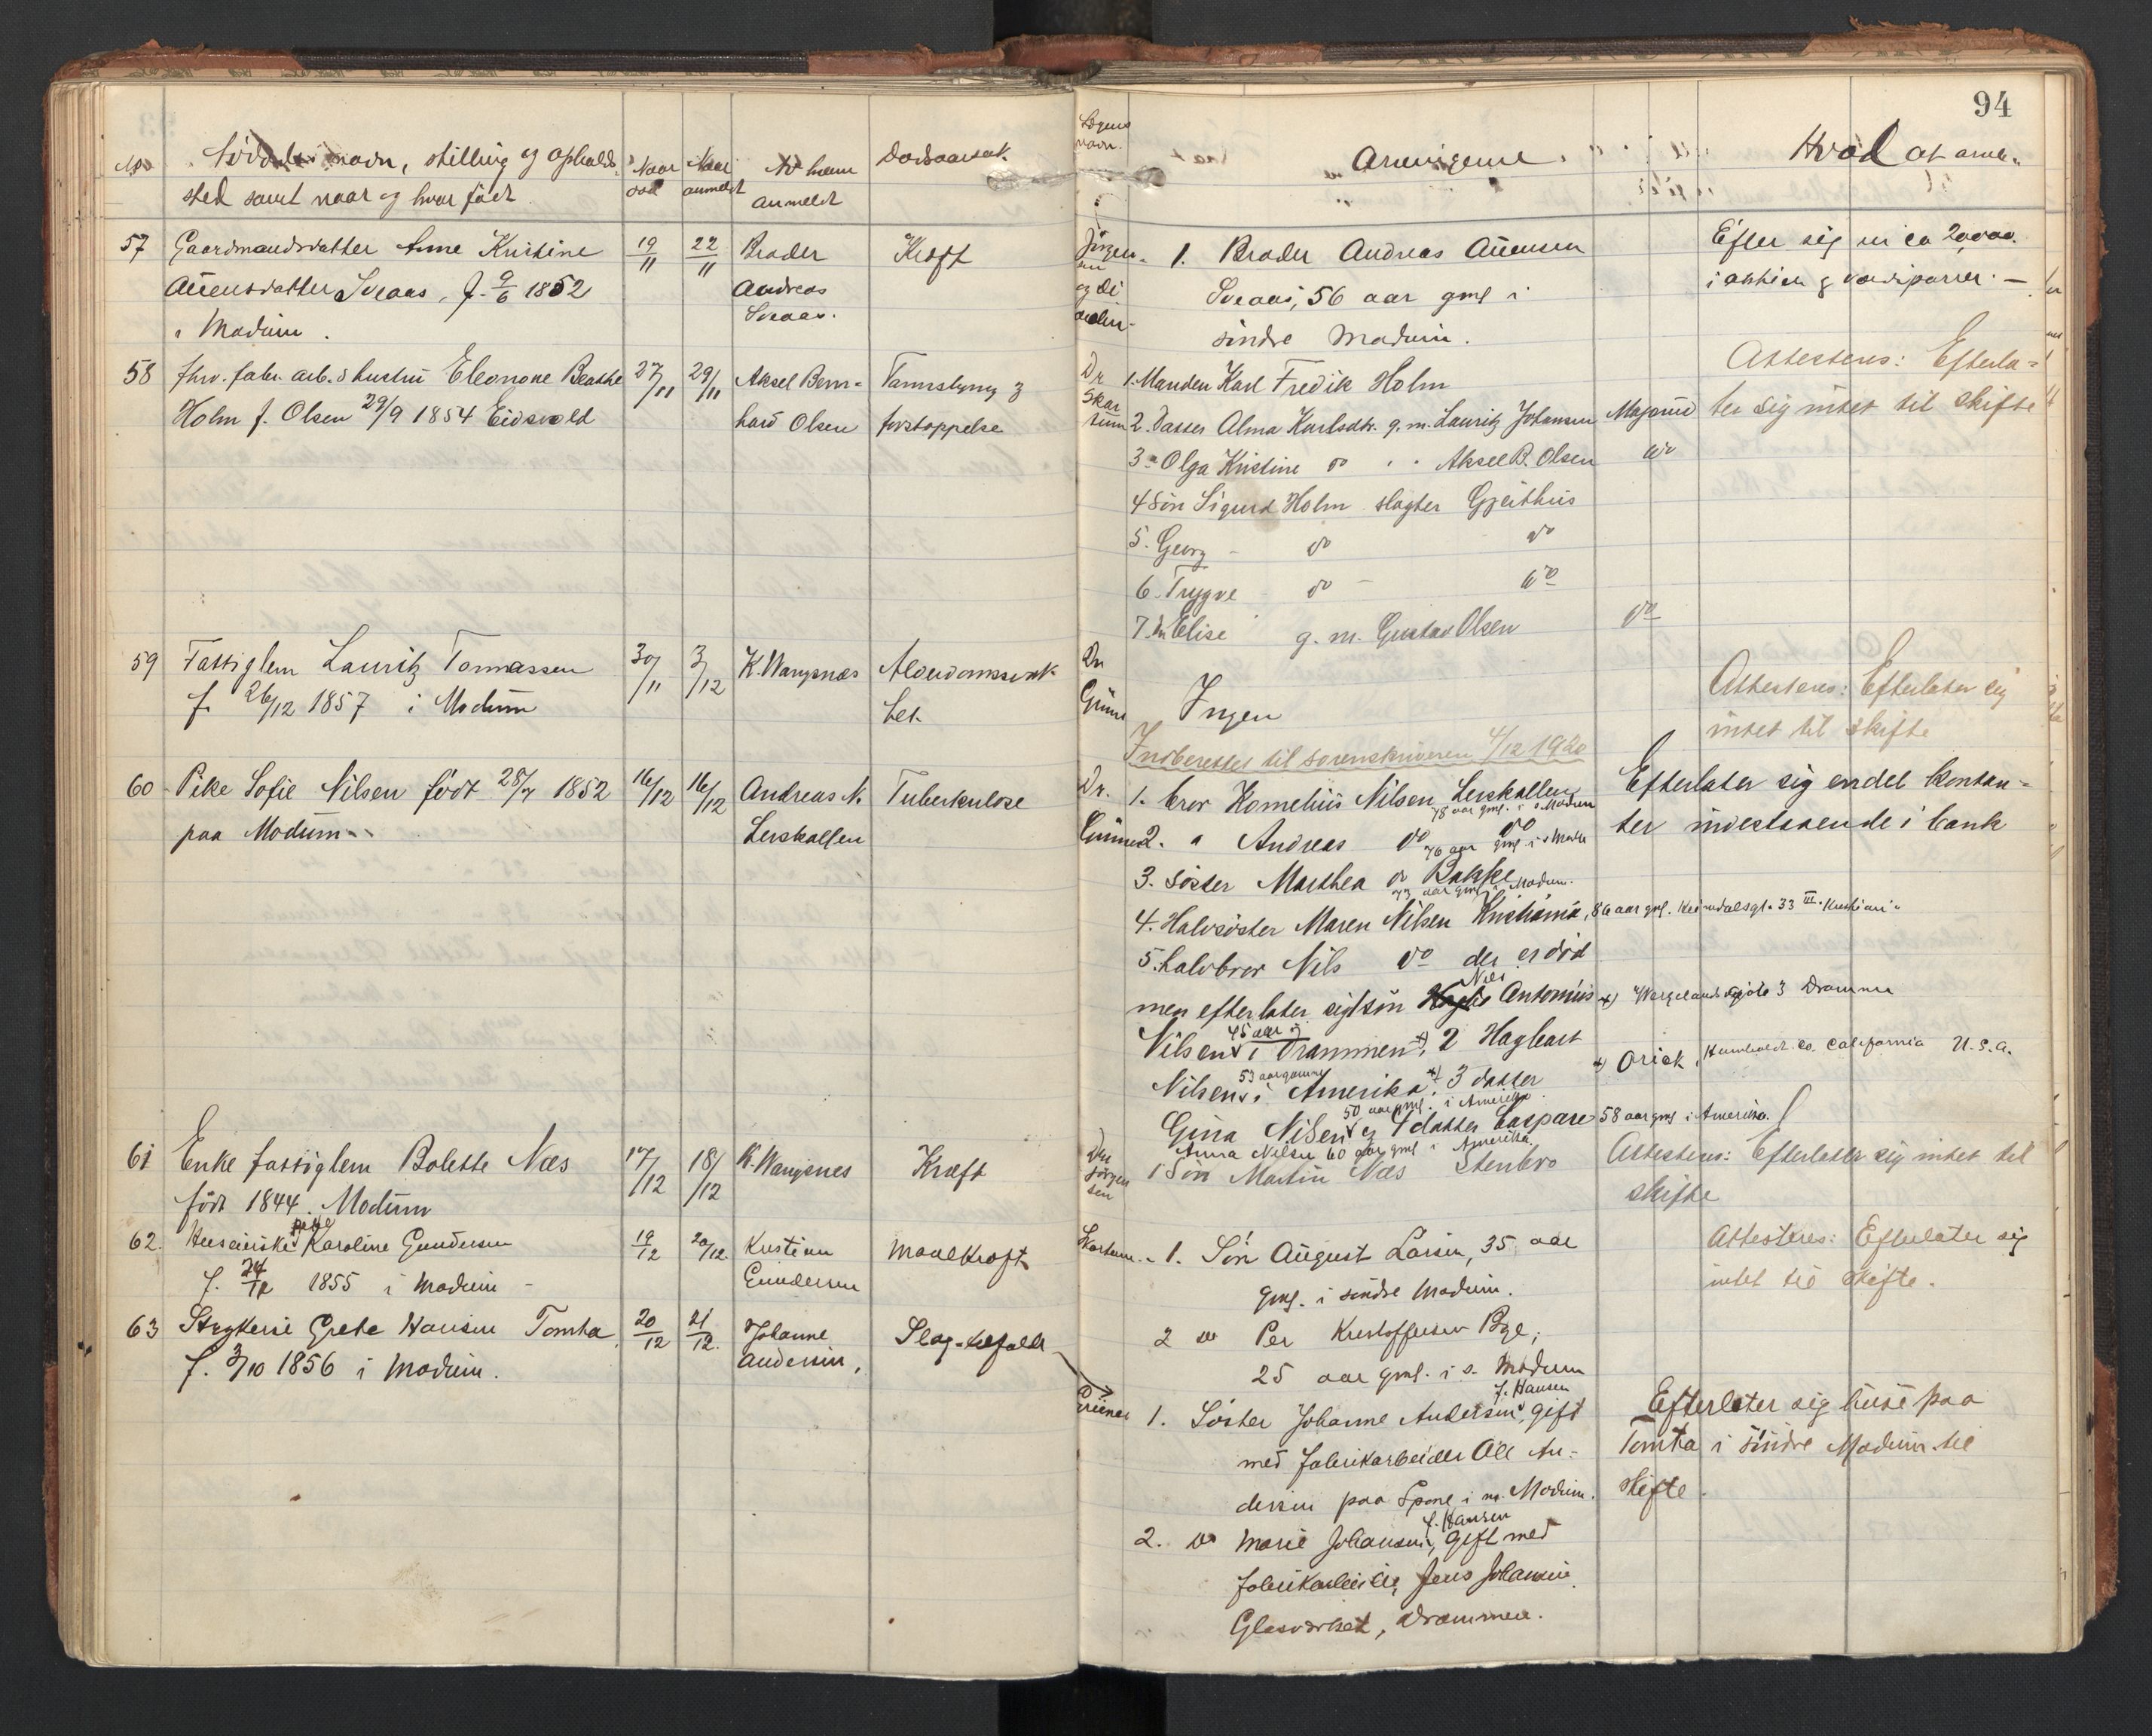 94
No Afdødes navn, stilling og opholds
sted samt naar og hvor født
Naar død
Naar anmeldt
Af hvem anmeldt
Dødsaarsak
Lægens navn.
Arvingerne
Hvad af arve
57 Gaardmandsdatter Anne Kristine
Auensdatter Sveaas, f. 9/6 1852
i Modum.
19/11 22/11 Broder
Andreas
Sveaas.
Kræft
1. Broder Andreas Auensen
Sveaas, 56 aar gml i
søndre Modum.
Efter sig en ca 20,000
i aktier & værdipapirer. —
58 fhv. fabr. arb.s hustru Eleonore Beathe
Holm f. Olsen 29/9 1854 Eidsvold
27/11 29/11 Aksel Bern=
hard Olsen
Tarmslyng &
forstoppelse
Dr
Skar
tum
1. Manden Karl Fredik Holm
2. Datter Alma Karlsdtr. g. m. Lauritz Johansen Modum
3 " Olga Kristine do " " Aksel B. Olsen do
4 Søn Sigurd Holm slagter Gjeithus
5. Georg - do do
6. Trygve - do - do
7. Elise g. m. Gustav Olsen do
Attesteres: Efterla=
ter sig intet til skifte
59 Fattiglem Lauritz Tomassen
f. 26/12 1857 i Modum
30/11 3/12 K. Wangsnæs
Alderdomssvak
het
Dr
Grüner
Ingen
Indberettet til sorenskriveren 4/12 1920
Attesteres: Efterlater sig
intet til skifte
60 Pike Sofie Nilsen født 28/7 1852
paa Modum
16/12 16/12 Andreas N.
Lerskallen
Tuberkulose
Dr.
Grüner
1. bror Kornelius Nilsen Lerskallen
78 aar gml. i s. Modum
2. " Andreas do do
76 aar gml i s Modum
3. søster Marthea do Bakke
73 aar gml i Modum.
4. Halvsøster Maren Nilsen Kristiania, 86 aar gml. 33 III Kristiania
5. halvbror Nils do der er død
men efterlater sig 1 søn Nils Antonius x) Wergelandsgate 3 Drammen
Nilsen 45 aar g i Drammen x), 2 Hagbart
Nilsen 53 aar gammel i Amerika x) 3 datter
x) Orick, Humboldt Co. California U.S.A.
50 aar gml. i Amerika
Gina Nilsen og 4 datter Caspare 58 aar gml i Amerika.
Anna Nilsen 60 aar gml i Amerika
Efterlater sig endel kontan=
ter indestaaende i bank
61 Enke fattiglem Bolette Næs
født 1844. Modum
17/12 18/12 K. Wangsnes
Kræft
Dr
Jørgen
sen
1 Søn Martin Næs Stenbro
Attesteres: Efterlater sig intet til
skifte
62. pike Karoline Gundersen
f. 24/12 1855 i Modum -
19/12 20/12. Kristian
Gundersen
Mavekræft
Skartum.
1. Søn August Larsen, 35 aar
gml. i søndre Modum.
2 do Per Kristoffersen Bye,
25 aar gml. i s. Modum
Attesteres: Efterlater sig
intet til skifte.
63 Strykerie Grete Hansen Tomta
f. 3/10 1856 i Modum.
20/12 21/12. Johanne
Andersen,
Slag-tilfælde
Grüner
1. Søster Johanne Andersen f. Hansen, gift
med fabrikarbeider Ole An=
dersen paa Spone i n. Modum.
2. do Marie Johansen f. Hansen, gift med
fabrikarbeider Jens Johansen
Glasværket, Drammen.
Efterlater sig huse paa
Tomta i søndre Modum til
skifte